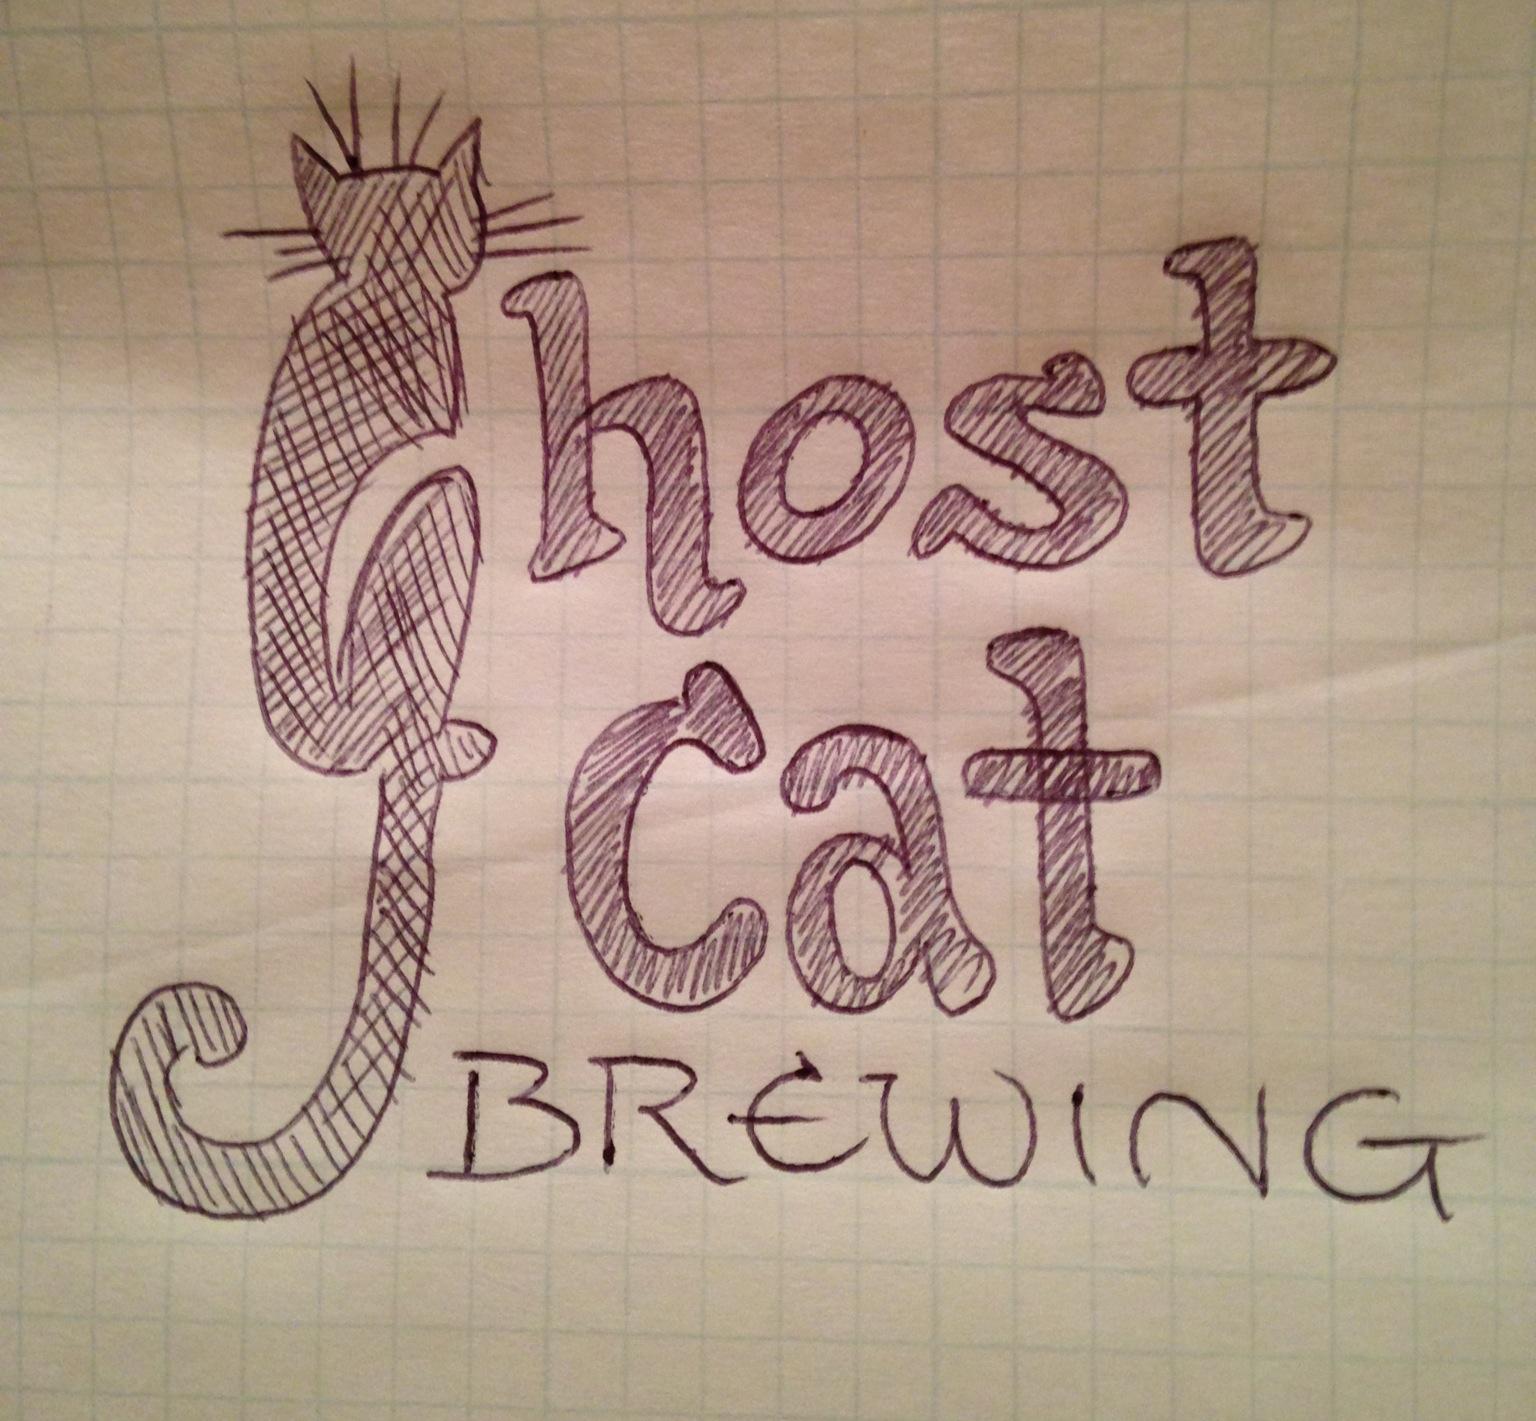 Ghost
Cat
BREWING